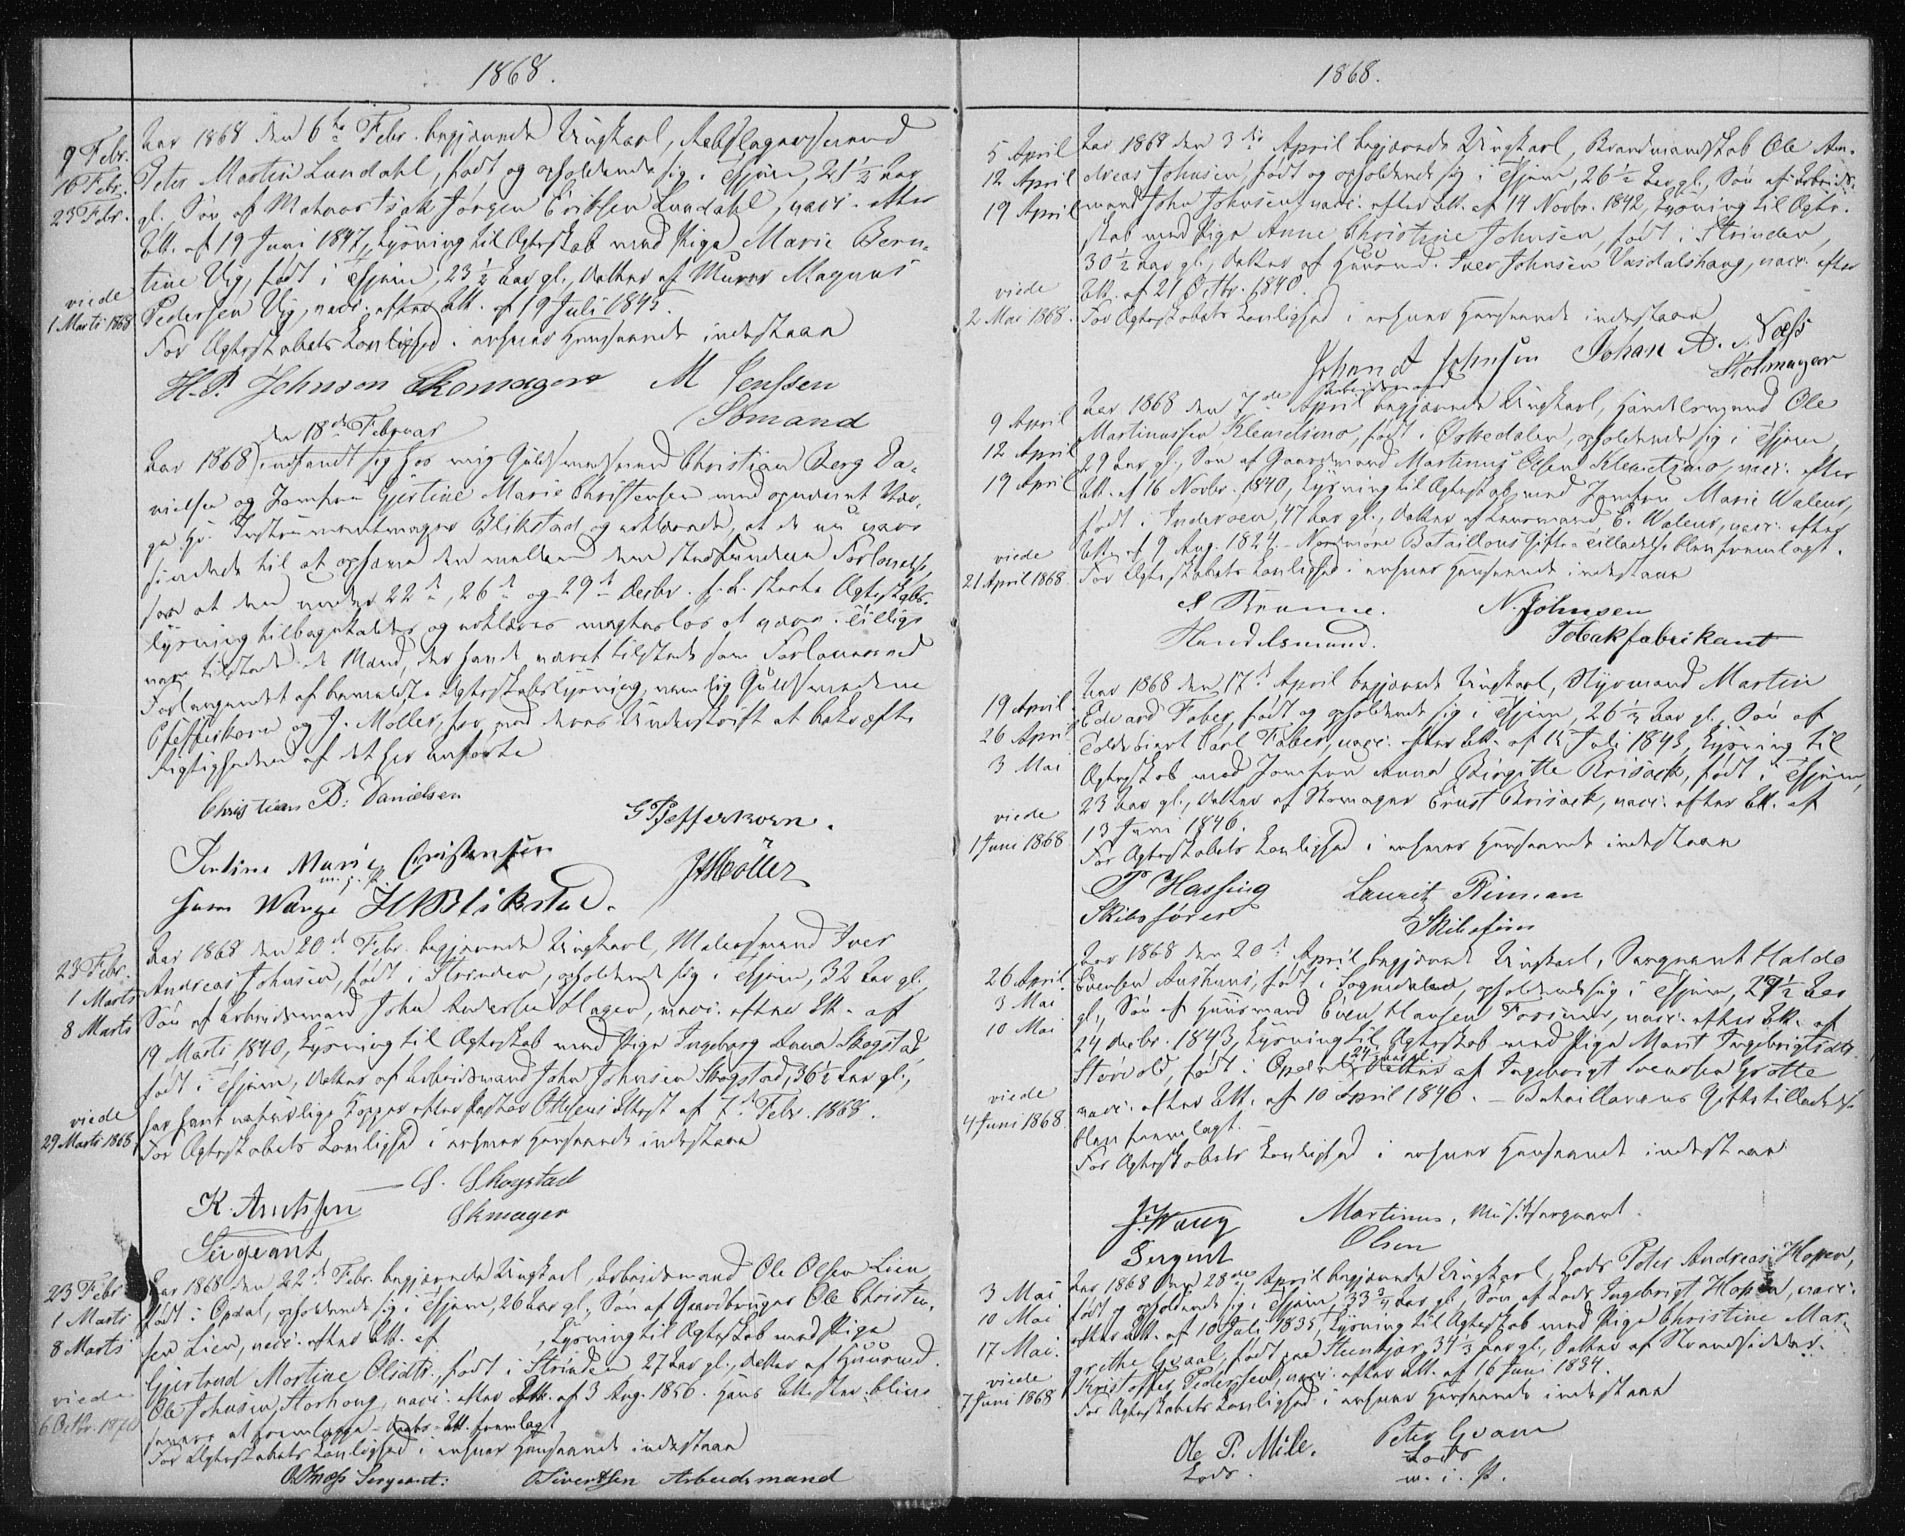 1868.
9 Febr.
16 Febr.
23 Febr.
viede
1 Marts 1868
Aar 1868 den 6te Febr. begjærede Ungkarl, Rebslagersvend
Peter Martin Lundahl, født og opholdende sig i Thjem, 21 1/2 Aar
gl., Søn af Matros Isak Jørgen Eriksen Lundahl, vacc. efter
Att. af 19 Juni 1847, Lysning til Ægteskab med Pige Marie Bern-
tine Vig, født i Thjem, 23 1/2 Aar gl., Datter af Murer Magnus
Pedersen Vig, vacc. efter Att. af 19 Juli 1845.
For Ægteskabets Lovlighed i enhver Henseende indestaaer
H. P. Johnson Skomager M Jenssen
Sømand
den 18de Februar
Aar 1868 indfandt sig hos mig Guldsmedsvend Christian Berg Da-
nielsen og Jomfru Gjertine Marie Christensen med opnævnt Vær-
ge Hr. Instrumentmager Blikstad og erklærede, at de nu vare
sindede til at ophæve den mellem dem stedfundne Forlovelse,
saa at den under 22de, 26de og 29de Decbr. f. A. skete Ægteskabs-
lysning tilbagekaldes og erklæres magtesløs at være. Tillige
vare tilstede de Mænd, der havde været tilstede som Forlovere ved
Forlangendet af bemeldte Ægteskabslysning, nemlig Guldsmedene
Pfefferkorn og J. Møller, for med deres Underskrift at bekræfte
Rigtigheden af det her anførte
Christian B. Danielsen
G Pfefferkorn.
Jentine Marie Christensen
m. f. P.
J Möller
som Værge H Blikstad.
23 Febr.
1 Marts
8 Marts
viede
29 Marts 1868
Aar 1868 den 20de Febr. begjærede Ungkarl, Malersvend Iver
Andreas Johnsen, født i Strinden, opholdende sig i Thjem, 32 Aar gl.,
Søn af Arbeidsmand John Andersen Hagen, vacc. efter Att. af
19 Marts 1840, Lysning til Ægteskab med Pige Ingeborg Anna Skogstad,
født i Thjem, Datter af Arbeidsmand John Johnsen Skogstad, 36 1/2 Aar gl.,
har havt naturlige Kopper efter Pastor Ottesens Attest af 7de Febr. 1868.
For Ægteskabets Lovlighed i enhver Henseende indestaaer
K. Arntssen S. Skogstad
Sergeant Skmager
23 Febr.
1 Marts
8 Marts
viede
6 Octbr. 1870
Aar 1868 den 22de Febr. begjærede Ungkarl, Arbeidsmand Ole Olsen Lien
født i Opdal, opholdende sig i Thjem, 26 Aar gl., Søn af Gaardbruger Ole Christen-
sen Lien, vacc. efter Att. af , Lysning til Ægteskab med Pige
Gjertrud Martine Olsdtr., født i Strinden, 27 Aar gl., Datter af Huusmd.
Ole Johnsen Storhoug, vacc. efter Att. af 3 Aug. 1856. Hans Attester blive
senere at fremlægge - Att. fremlagt
For Ægteskabets Lovlighed i enhver Henseende indestaaer
Sergeant: O Sivertsen Arbeidsmand
1868.
5 April
12 April
19 April
viede
2 Mai 1868.
Aar 1868 den 3die April begjærede Ungkarl, Brandmandskab Ole An-
dreas Johnsen, født og opholdende sig i Thjem, 26 1/2 Aar gl., Søn af Arbeids-
mand John Johnsen, vacc. efter Att. af 14 Novbr. 1842, Lysning til Ægte-
skab med Pige Anne Christine Johnsen, født i Strinden,
30 1/2 Aar gl., Datter af Huusmd. Iver Johnsen Vasdalshaug, vacc. efter
Att. af 21 Octbr. 1840.
For Ægteskabets Lovlighed i enhver Henseende indestaaer
Johan A Johnsen Johan A. Næss
Arbeidsmand Stolmager
9 April
12 April
19 April
viede
21 April 1868
Aar 1868 den 7de April begjærede Ungkarl, Handelsmand Ole
Martinussen Klemetsmo, født i Ørkedalen, opholdende sig i Thjem,
29 Aar gl., Søn af Gaardmand Martinus Olsen Klemetsmo, vacc. efter
Att. af 16 Novbr. 1840, Lysning til Ægteskab med Jomfru Marie Waleur,
født i Inderøen, 47 Aar gl., Datter af Lensmand E. Waleur, vacc. efter
Att. af 9 Aug. 1824 - Nordmøre Bataillons Gifte-Tilladelse blev fremlagt.
For Ægteskabets Lovlighed i enhver Henseende indestaaer
Brunne. N. Johnsen
Handelsmand. Tobakfabrikant
19 April
26 April
3 Mai
viede
1 Juni 1868
Aar 1868 den 17de April begjærede Ungkarl, Styrmand Martin
Edvard Faber, født og opholdende sig i Thjem, 26 1/4 Aar gl., Søn af
Toldbetjent Carl Faber, vacc. efter Att. af 15 Juli 1843, Lysning til
Ægteskab med Jomfru Anna Birgitte Brisack, født i Thjem,
23 Aar gl., Datter af Skomager Ernst Brisack, vacc. efter Att. af
13 Juni 1846.
For Ægteskabets Lovlighed i enhver Henseende indestaaer
P Hassing Lauritz Rinnan
Skibsfører Skibsfører
26 April
3 Mai
10 Mai
viede
4 Juni 1868
Aar 1868 den 20de April begjærede Ungkarl, Sergeant Haldo
Evensen Aushuus, født i Soknedalen, opholdende sig i Thjem, 29 1/2 Aar
gl., Søn af Huusmand Even Hansen Fossmo, vacc. efter Att. af
24 Decbr. 1843, Lysning til Ægteskab med Pige Marit Ingebrigtsdtr.
Størvold, født i Opdal, 24 Aar gl., Datter af Ingebrigt Svendsen Grøtte
vacc. efter Att. af 10 April 1846. - Bataillonens Giftetilladelse
blev fremlagt.
For Ægteskabets Lovlighed i enhver Henseende indestaaer
J. Waug Martinus, Musiksergeant.
Sergent Olsen
3 Mai
10 Mai
17 Mai.
viede
7 Juni 1868
Aar 1868 den 28de April begjærede Ungkarl, Lods Peter Andreas Hopen,
født og opholdende sig i Thjem, 33 3/4 Aar gl., Søn af Lods Ingebrigt Hopen, vacc.
efter Att. af 10 Juli 1835, Lysning til Ægteskab med Pige Christine Mar-
grethe Qvaal, født paa Steenkjær, 34 1/3 Aar gl., Datter af Strandsidder
Kristoffer Pedersen, vacc. efter Att. af 16 Juni 1834.
For Ægteskabets Lovlighed i enhver Henseende indestaaer
Ole P. Mile. Peter Qvam
Lods. Lods
m. i. P.